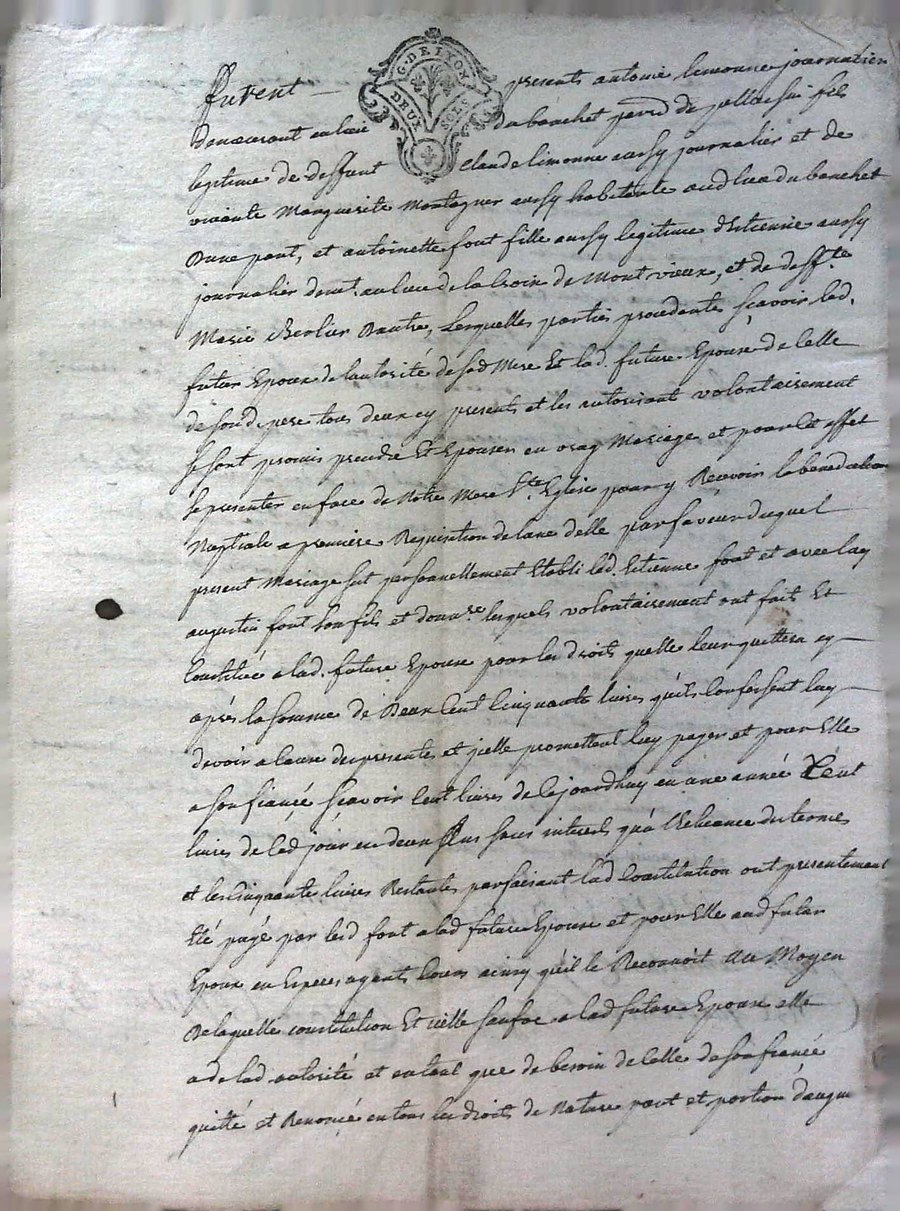 G. DE LYON
DEUX SOLS
Furent presents antoine limonne journalier
demeurant au lieu du banchet parr.e de pellussin fils
legitime de deffunt claude limonne aussy journalier et de
vivante Marguerite Montagner aussy habitante aud lieu du banchet
Dune part, et antoinette font fille aussy legitime d'Etienne aussy
journalier demt. au lieu de la Croix de Montvieux, et de defft.e
Marie Berlier Dautre, Lesquelles parties procedantes sçavoir led.
futur Epoux de lautorité de sad Mere Et lad. future Epouse de Celle
de sond. pere tous deux cy presents et les autorisant volontairement
se sont promis prendre Et Epouser en vray Mariage, et pour cet effet
se presenter en face de Notre Mere Ste. Eglise pour y Recevoir la benediction
Nuptiale a premiere Requisition de lune delle par faveur duquel
present Mariage sut personnellement Etabli led. Etienne font et avec luy
augustin font son fils et donn.re lesquels volontairement ont fait Et
Constitué a lad. future Epouse pour les droits quelle leur quittera cy
après la somme de Deux Cent Cinquante livres qu'ils Confessent luy
devoir a cause des presentes et jcelle promettent luy payer et pour Elle
a son fiancé sçavoir Cent livres de cejourdhuy en une année Cent
livres de ced jour en deux ans sans interets qu'a l'Echeance du terme
et les Cinquante livres Restantes parfaisant lad Constitution ont presentement
Eté payé par lesd font a lad future Epouse et pour Elle aud futur
Epoux en Especes ayant Cours ainsy qu'il le Reconnoit Au Moyen
De laquelle constitution Et icelle sauf a lad future Epouse elle
a de lad autorité et entant que de besoin de Celle de son fiancé
quitté et Renoncé en tous les droits de Nature part et portion d'augm